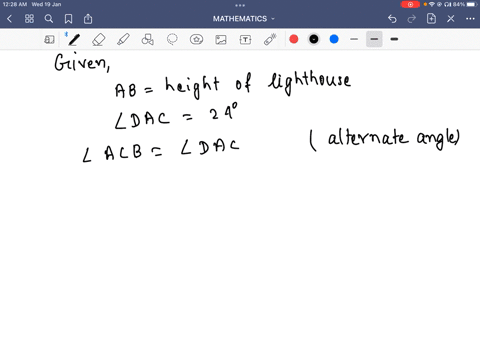 12:28 AM Wed 19 Jan
84%
MATHEMATICS
Given,
AB = height of lighthouse
∠DAC = 24°
∠ACB = ∠DAC (alternate angle)